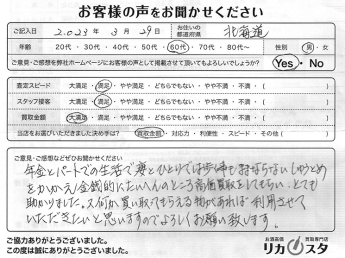 お客様の声をお聞かせください
ご記入日 2023年 3月 29日 お住いの都道府県 北海道
年齢 20代・30代・40代・50代・60代・70代・80代〜 性別 男・女
ご意見・ご感想を弊社ホームページにお客様の声として掲載させて頂いてもよろしいでしょうか? Yes・No
査定スピード 大満足・満足・やや満足・どちらでもない・やや不満・不満 ( )
スタッフ接客 大満足・満足・やや満足・どちらでもない・やや不満・不満 ( )
買取金額 大満足・満足・やや満足・どちらでもない・やや不満・不満 ( )
当店をお選びいただきました決め手は? 買取金額・対応力・利便性・スピード・その他 ( )
ご意見・ご感想などぜひお聞かせください
年金とパートでの生活で妻とひとりでは歩事もまならないしゅうとめ
をかかえ金銭的にたいへんのところ高価買取をしてもらい、とても
助かりました。又何か買い取ってもらえる物があれば利用させて
いただきたいと思いますのでよろしくお願い致します。
ご協力ありがとうございました。
この度は誠にありがとうございました。
お酒高価買取専門店
リカスタ